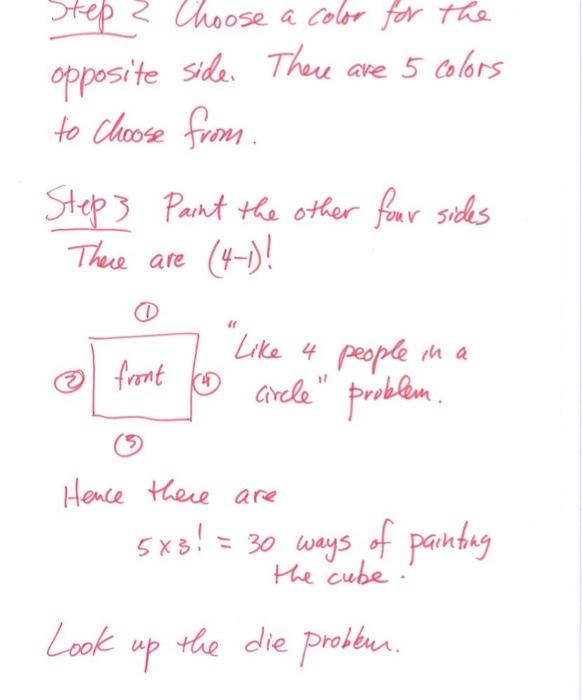 Step 2 Choose a color for the
opposite side. There are 5 colors
to choose from.
Step 3 Paint the other four sides
There are (4-1)!
①
"Like 4 people in a
② front ④ circle" problem.
③
Hence there are
5 x 3! = 30 ways of painting
the cube.
Look up the die problem.